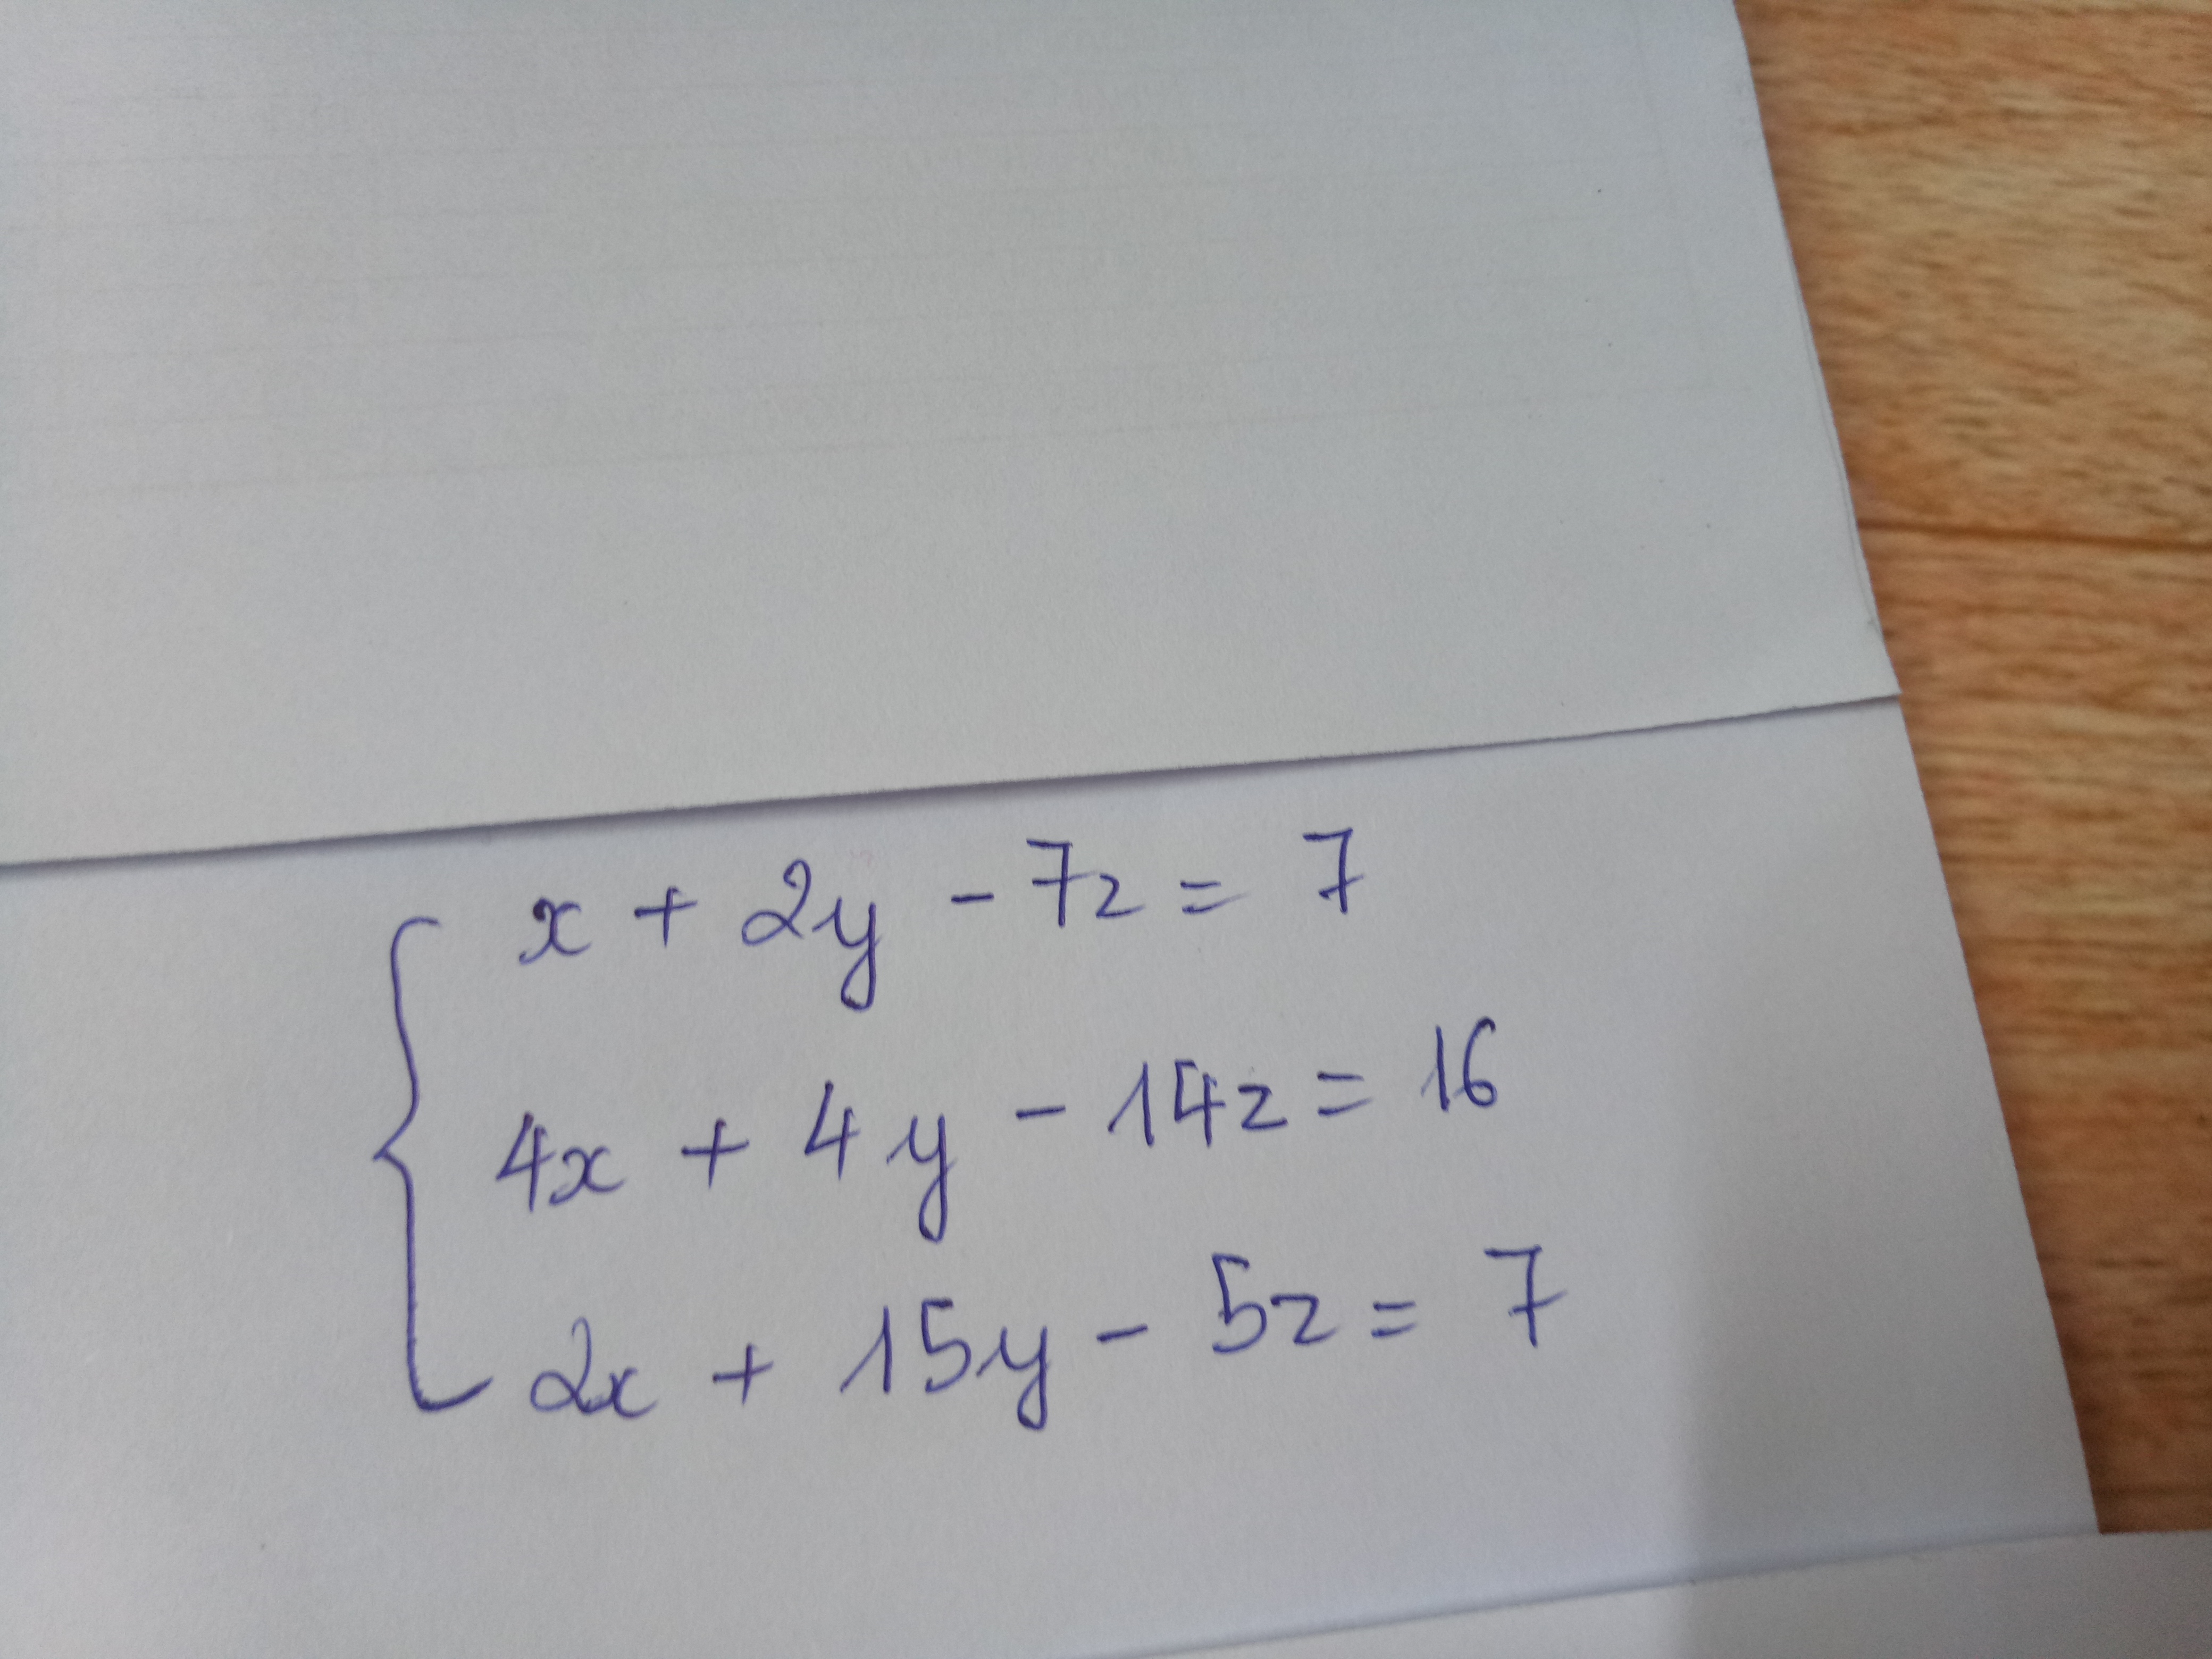 x + 2y - 7z = 7
4x + 4y - 14z = 16
2x + 15y - 5z = 7